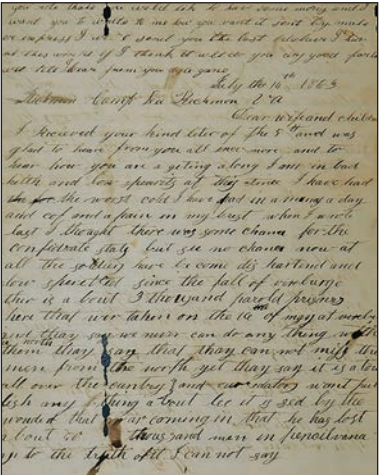 you rite that you would like to have some mony and I
want you to write to me how you want it sent by male
or express I will send you the best
at this
write hear from you a gane
July the 14th 1863
Richmon Camp Lee Richmon VA
Dear wife and children
I received your kind leter of the 5th and was
glad to hear from you all once more and to
hear how you are a giting along I am in bad
helth and low speairits at this time I have had
the for the worst cold I have had in a many a day
and cof and a pain in my brest when I wrote
last I thought there was some chance for the
confedrate stats but see no chance now at
all the soldiers have become dis hartend and
low spireted since the fall of
ther is a bout 3 thousand parold prisners
here that wer taken on the
and thay say we never can do any thing with
them thay say that thay can not miss the
men from the north yet thay say it is a low
all over the cuntry and our
lish any thing a bout lee it is sed by the
wonded that ar coming in that he has lost
a bout thousand men in penselvana
as to the truth of it I can not say